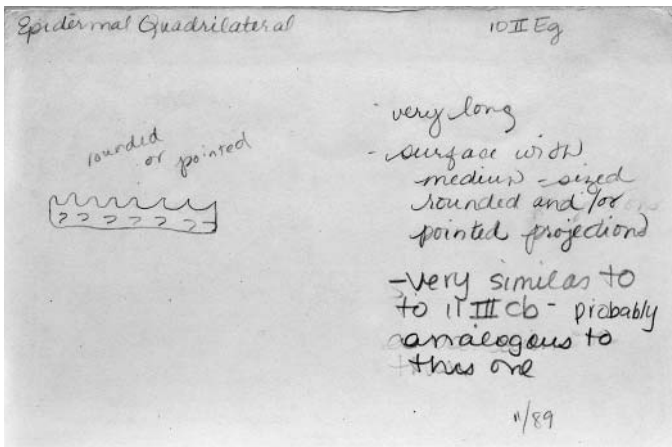 Epidermal Quadrilateral
10 II Eg
rounded
or pointed
very long
- surface with
medium-sized
rounded and/or
pointed projections
-very similar to
to 11 III Cb - probably
analogous to
this one
11/89